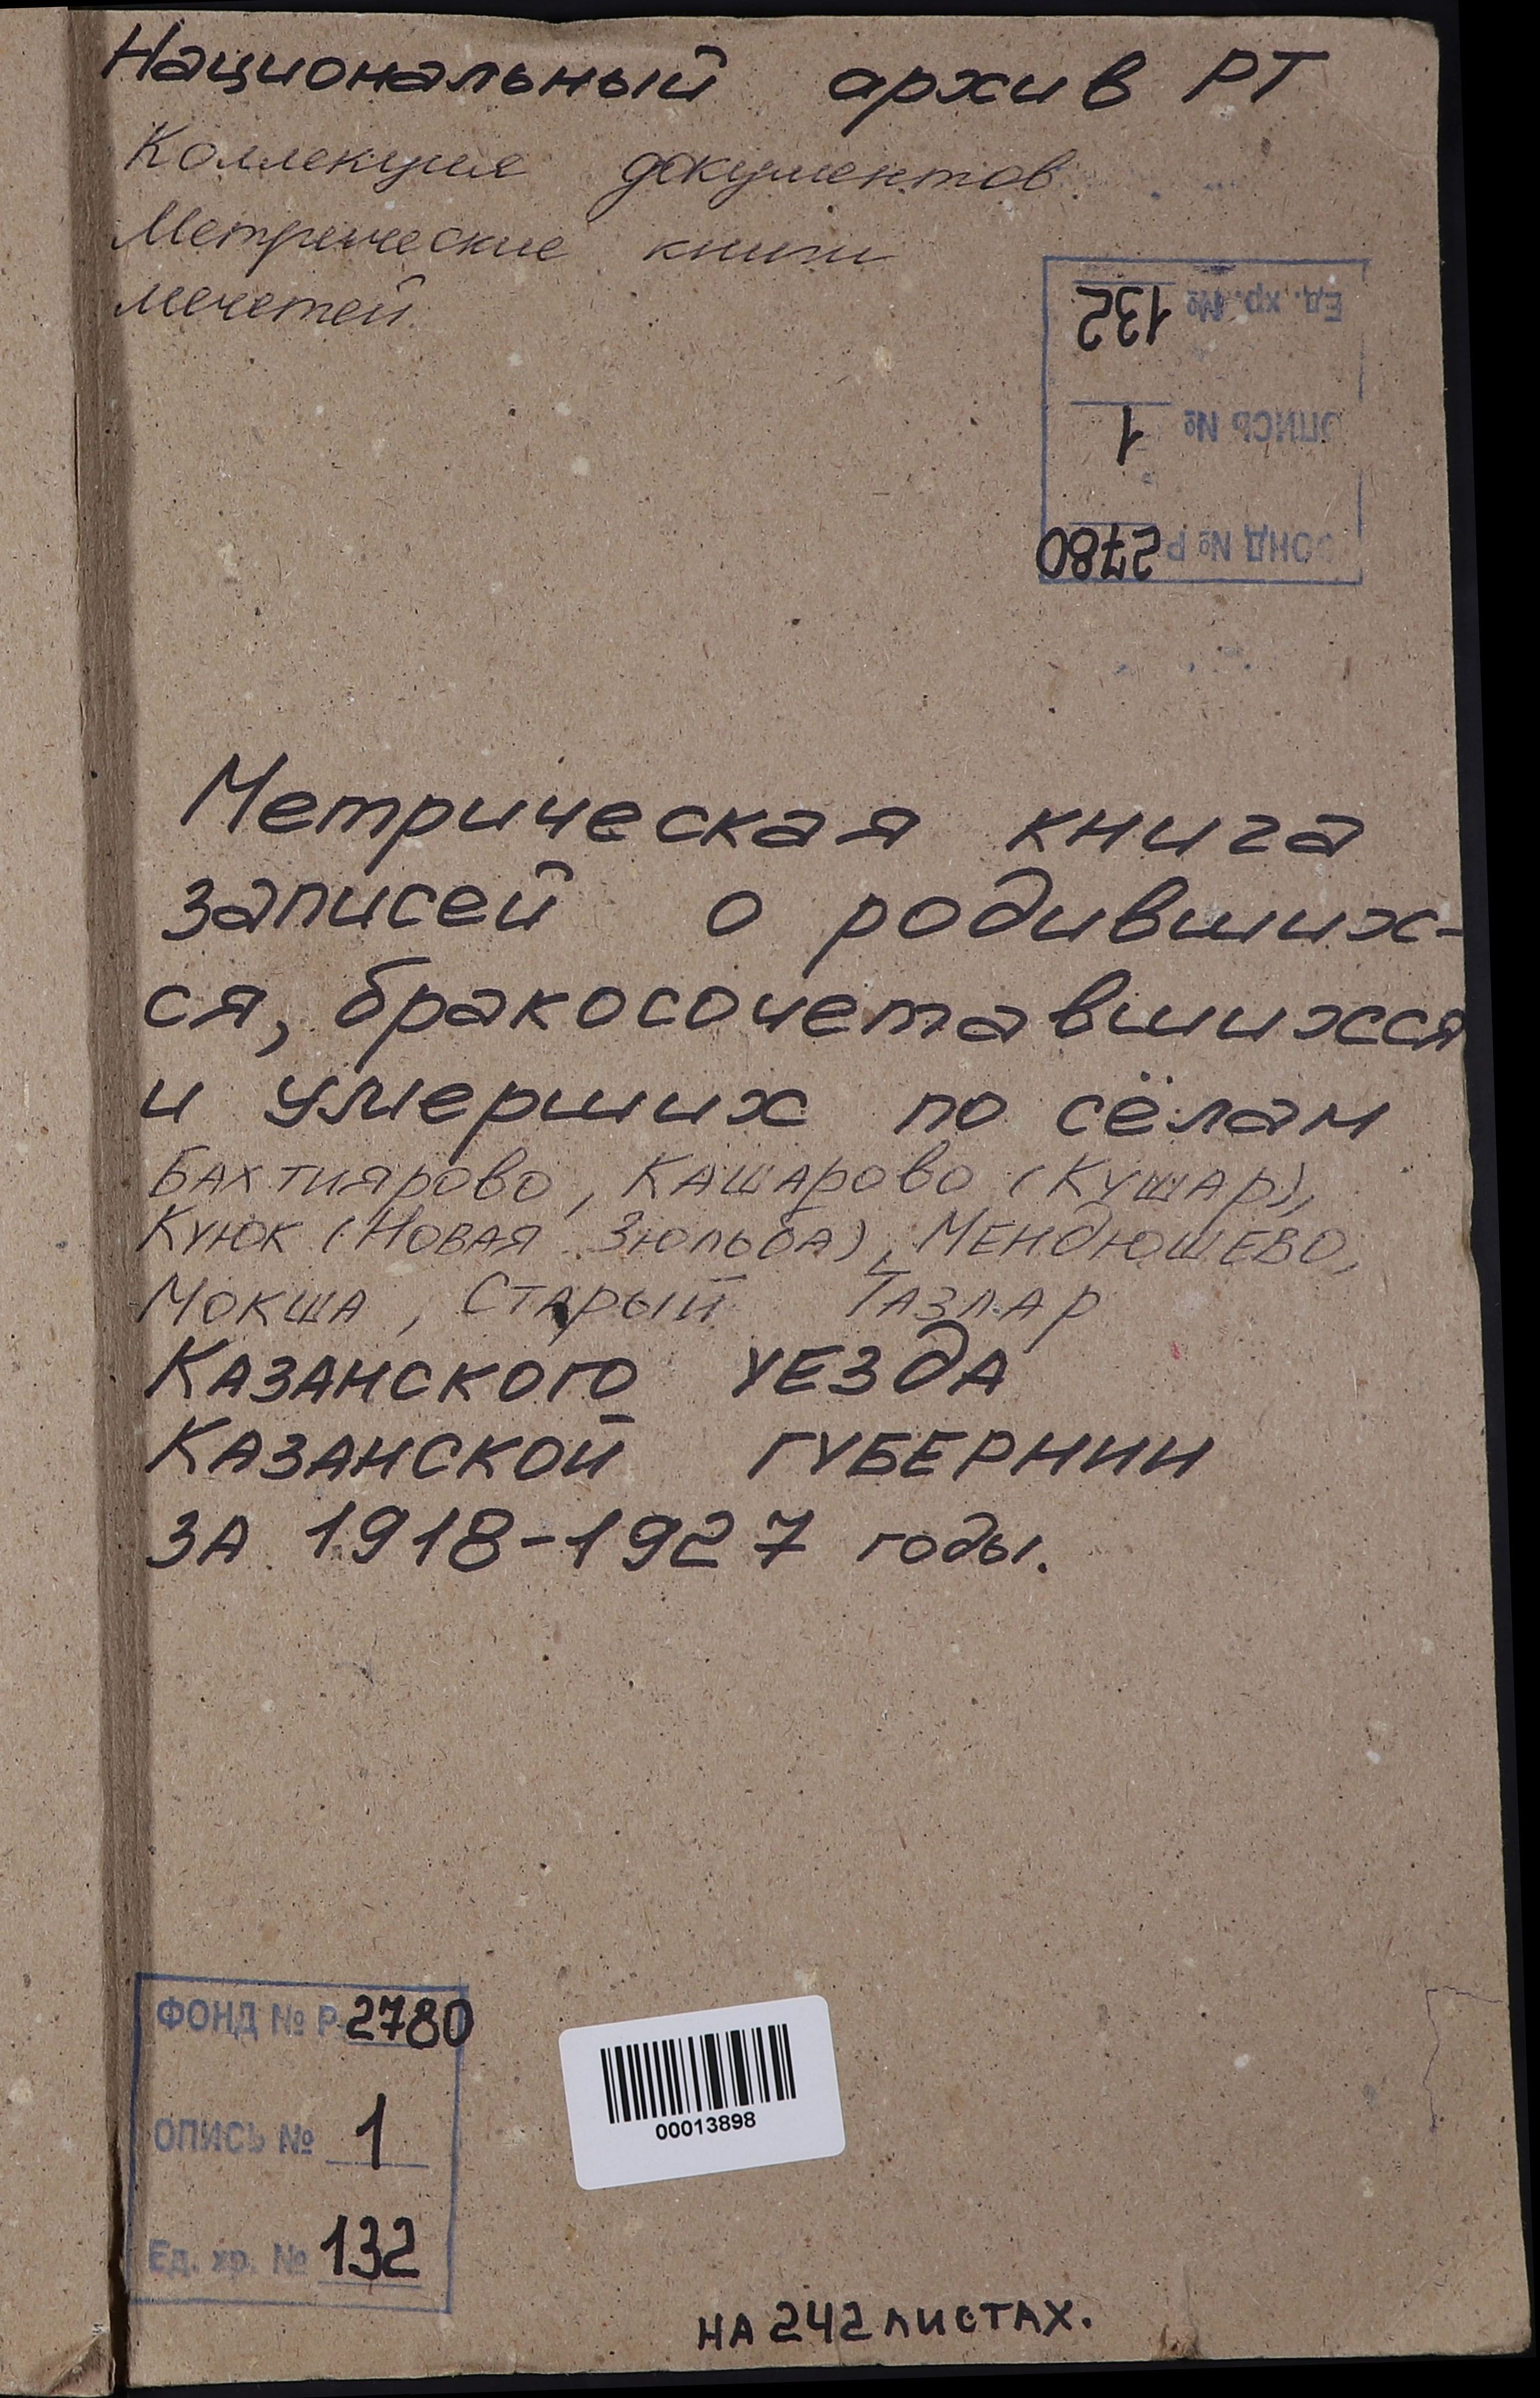 Национальный архив РТ
Коллекция документов
Метрические книги
мечетей
Ед. хр. № 132
ОПИСЬ № 1
ФОНД № Р 2780
Метрическая книга
записей о родивших-
ся, бракосочетавшихся
и умерших по сёлам
Бахтиярово, Кашарово (Кушар),
Куюк (Новая Зюльба), Мендюшево,
Мокша, Старый Тазлар
Казанского уезда
Казанской губернии
за 1918-1927 годы.
ФОНД № Р-2780
ОПИСЬ № 1
Ед. хр. № 132
00013898
НА 242 ЛИСТАХ.